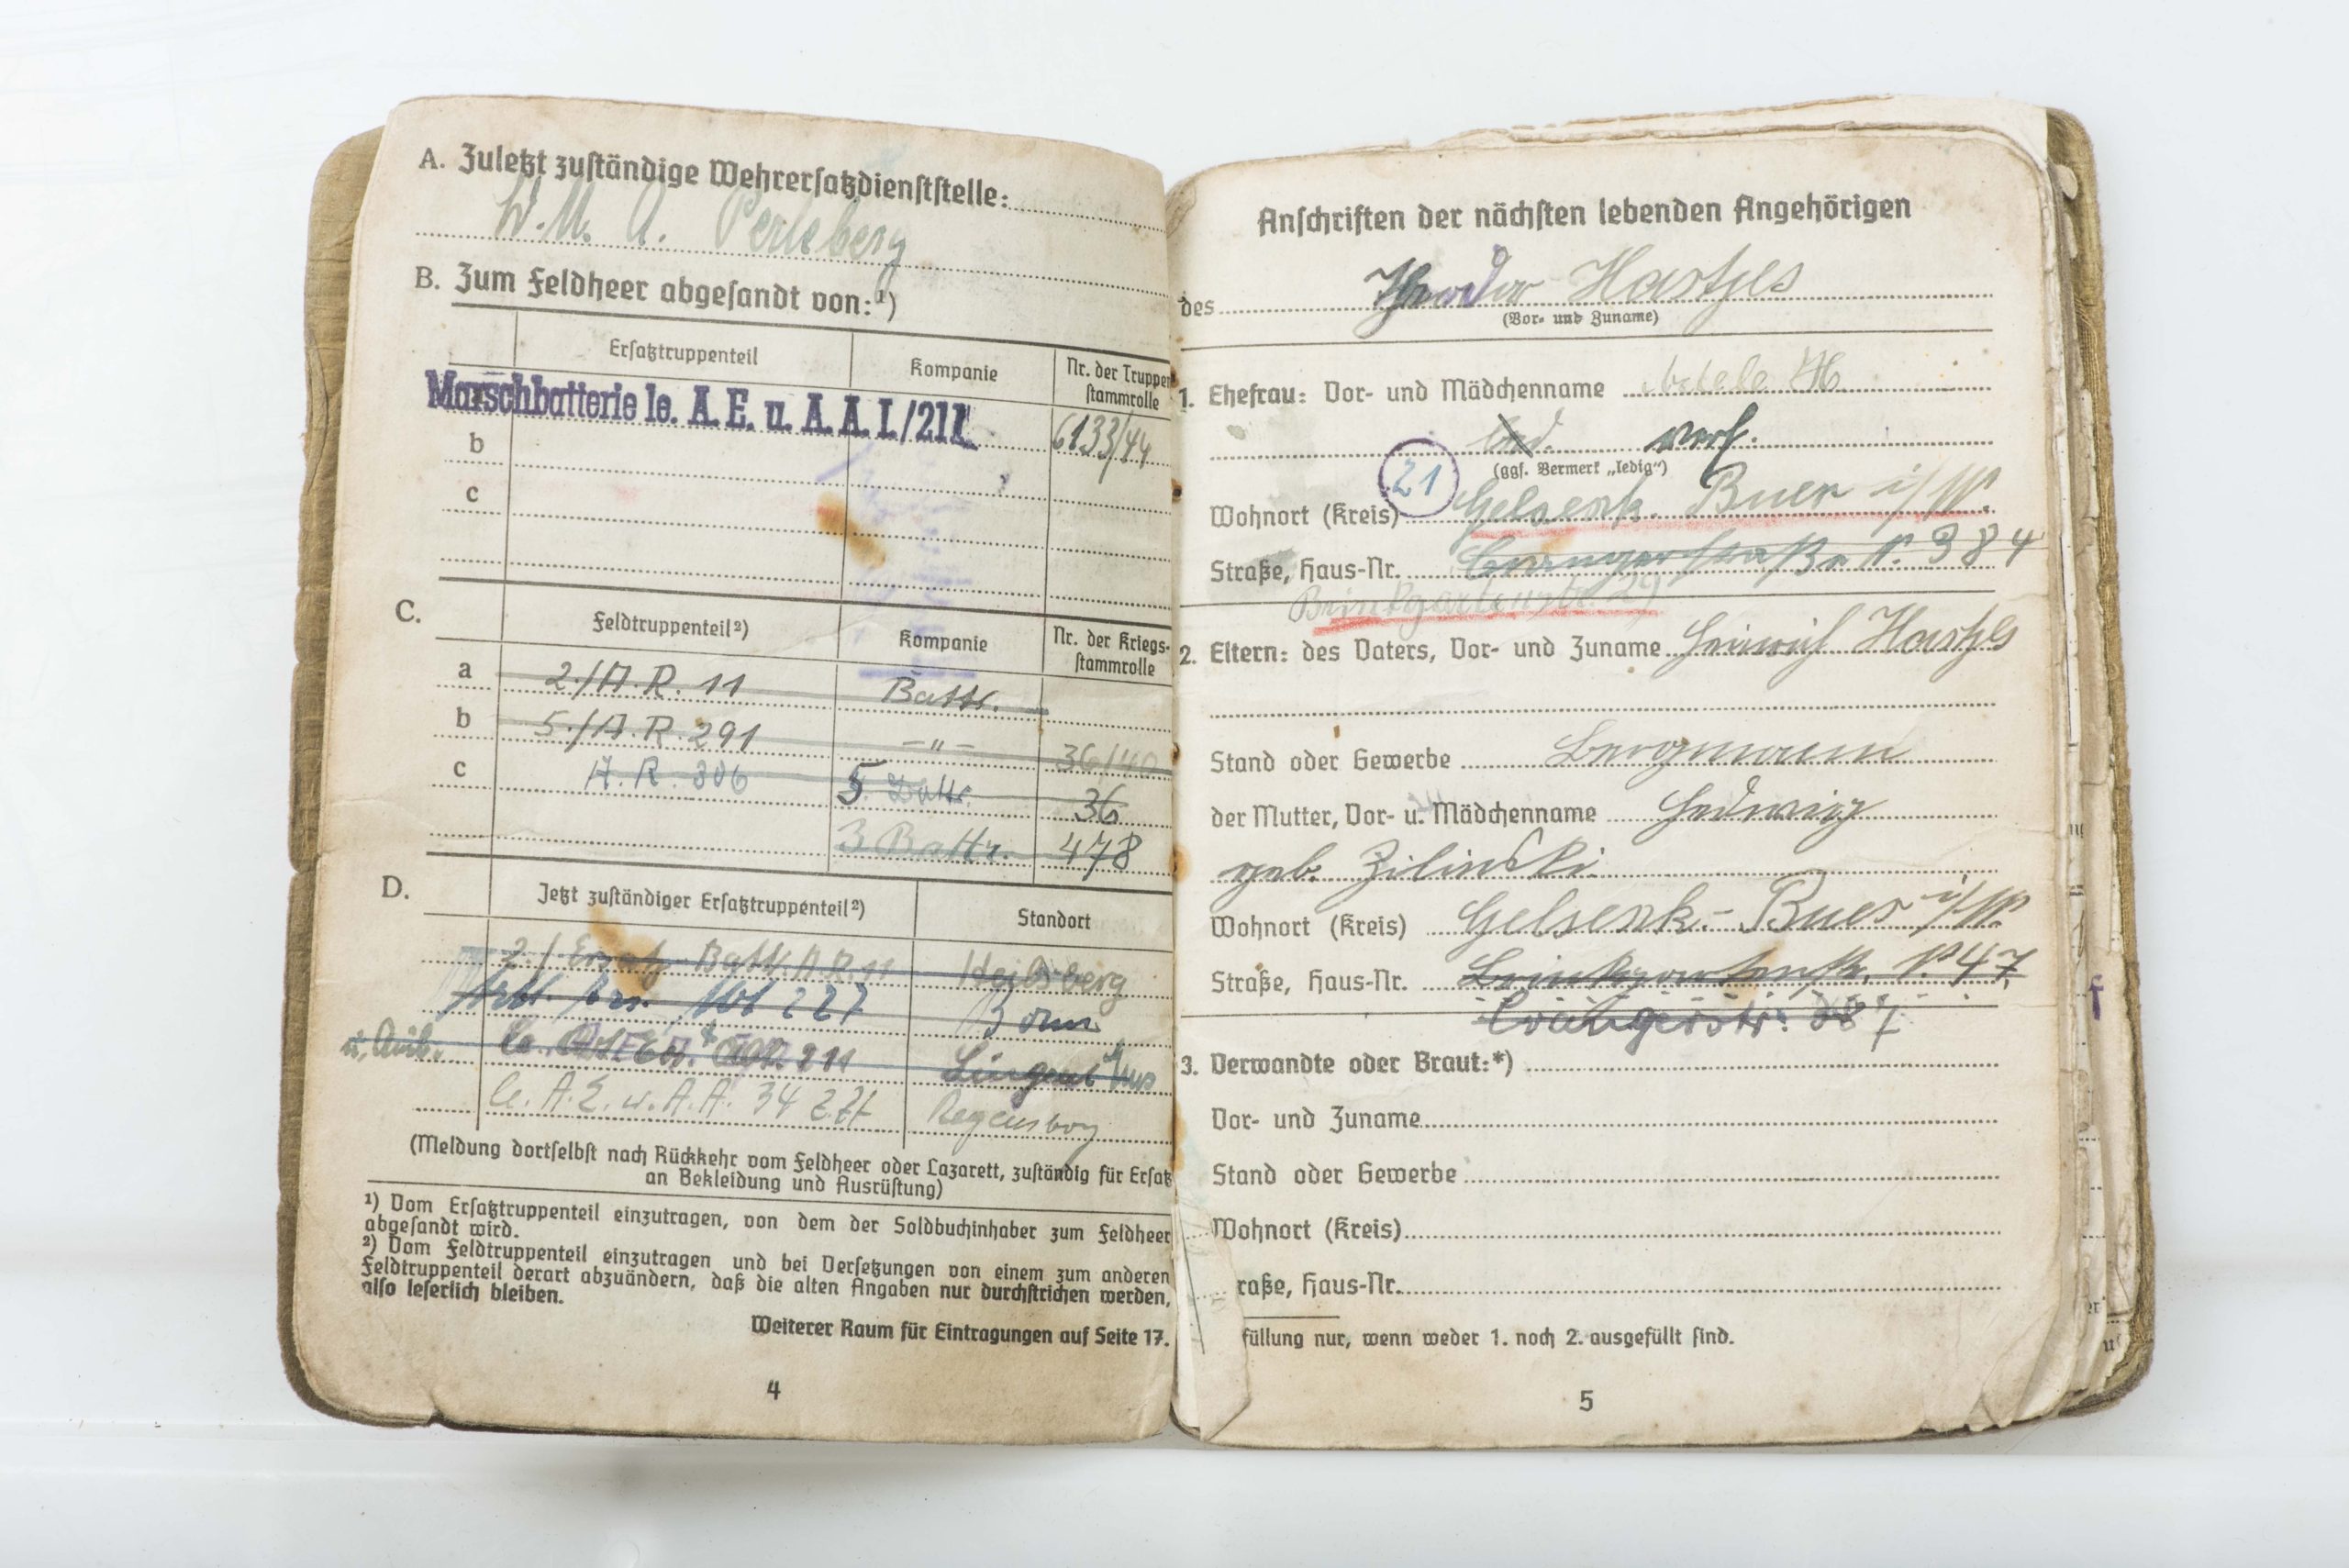 A. Zuletzt zuständige Wehrersatzdienststelle:
W.M.A. Perleberg
B. Zum Feldheer abgesandt von:¹)
Ersatztruppenteil Kompanie Nr. der Truppen stammrolle
Marschbatterie le. A. E. u. A. A. I./211 6133/44
b
c
C. Feldtruppenteil²) Kompanie Nr. der Kriegs- stammrolle
a 2./A.R. 11 Battr.
b 5./A.R. 291 -"- 36/40
c A.R. 306 5. Battr. 36
3 Battr. 478
D. Jetzt zuständiger Ersatztruppenteil²) Standort
2./Ersatz-Battr. A.R. 11 Heilsberg
227 Bonn
211 Lingen
le. A.E. u. A.A. 34 z.Zt Regensbg
(Meldung dortselbst nach Rückkehr vom Feldheer oder Lazarett, zuständig für Ersatz
an Bekleidung und Ausrüstung)
¹) Vom Ersatztruppenteil einzutragen, von dem der Soldbuchinhaber zum Feldheer
abgesandt wird.
²) Vom Feldtruppenteil einzutragen und bei Versetzungen von einem zum anderen
Feldtruppenteil derart abzuändern, daß die alten Angaben nur durchstrichen werden,
also leserlich bleiben.
Weiterer Raum für Eintragungen auf Seite 17.
4
Anschriften der nächsten lebenden Angehörigen
des Theodor Hastjes
(Vor- und Zuname)
1. Ehefrau: Vor- und Mädchenname
led. verh.
(ggf. Vermerk „ledig“)
21
Wohnort (Kreis) Gelsenk. Buer i/W.
Straße, Haus-Nr. Crangerstraße N. 384
Brinkgartenstr. 29
2. Eltern: des Vaters, Vor- und Zuname Heinrich Hastjes
Stand oder Gewerbe Bergmann
der Mutter, Vor- u. Mädchenname Hedwig
geb. Zilinski
Wohnort (Kreis) Gelsenk.- Buer i/W.
Straße, Haus-Nr. Brinkgartenstr. N. 47
Crangerstr. 387
3. Verwandte oder Braut:*)
Vor- und Zuname
Stand oder Gewerbe
Wohnort (Kreis)
raße, Haus-Nr.
füllung nur, wenn weder 1. noch 2. ausgefüllt sind.
5